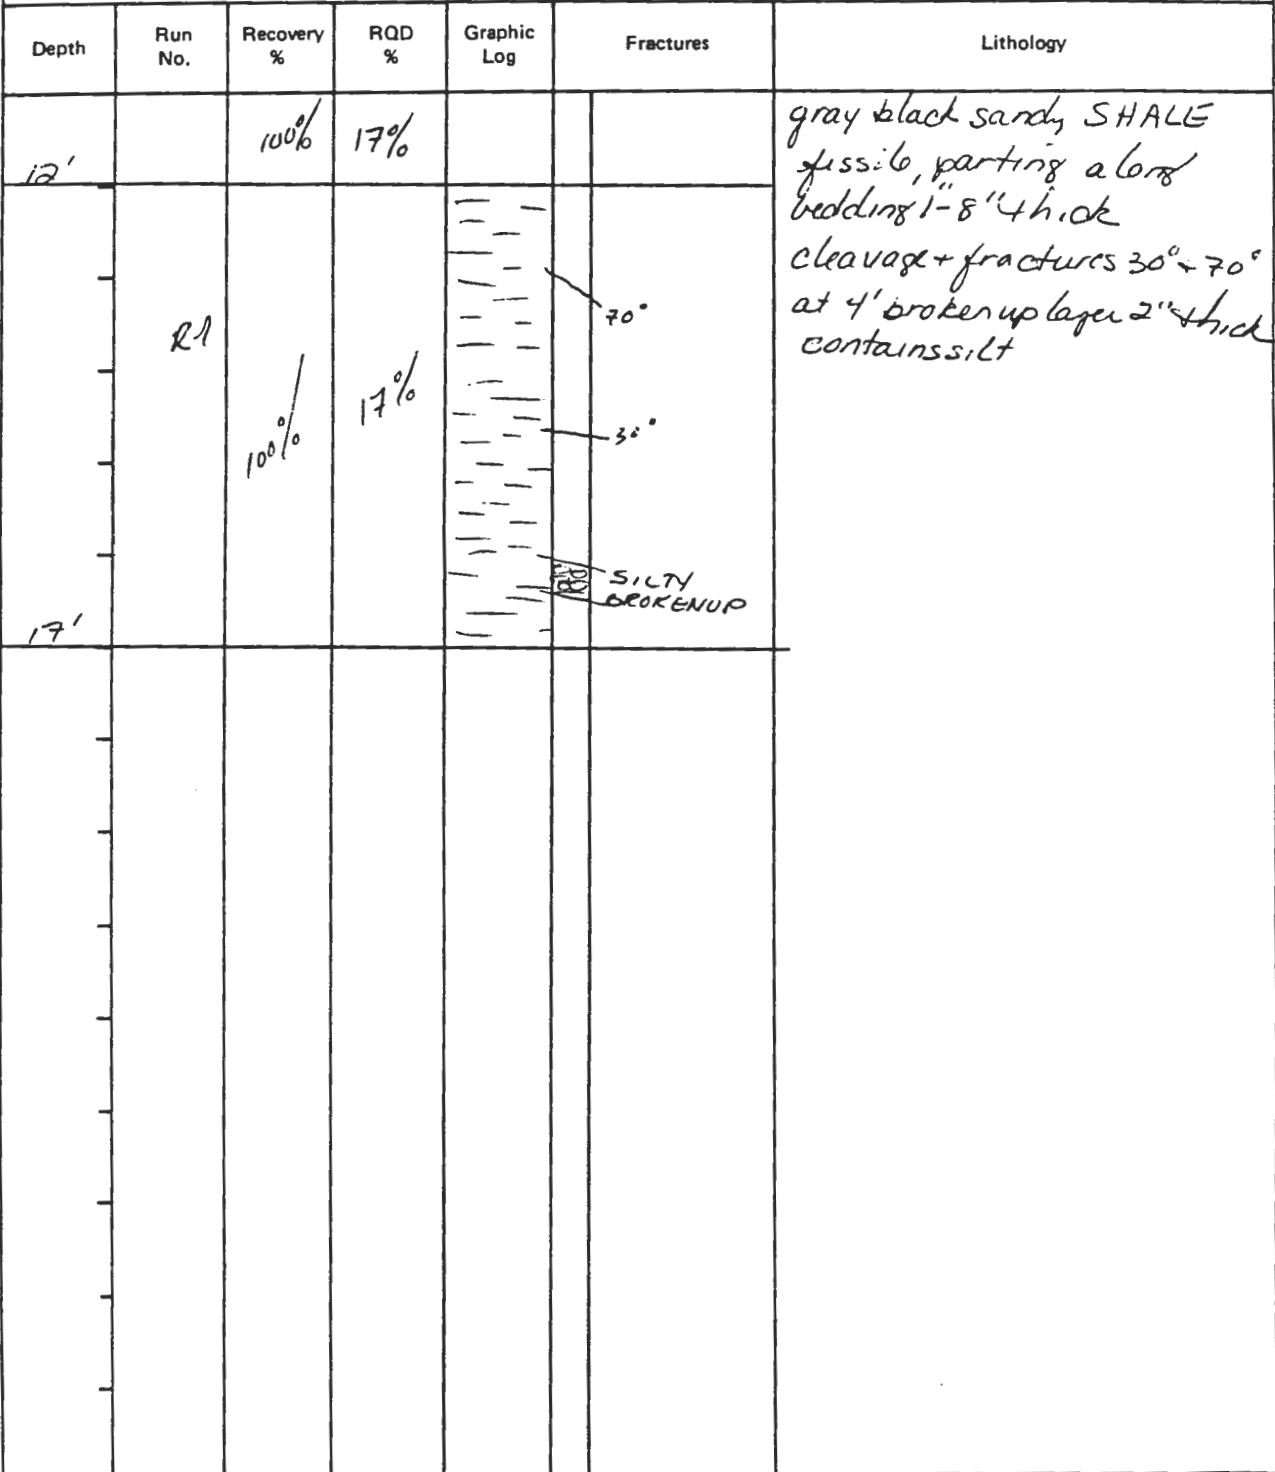 Depth
Run
No.
Recovery
%
RQD
%
Graphic
Log
Fractures
Lithology
100%
17%
12'
gray black sandy SHALE
fissile, parting along
bedding 1"-8" thick
cleavage + fractures 30° + 70°
at 4' broken up layer 2" thick
contains silt
70°
R1
100%
17%
30°
SILTY
BROKENUP
17'